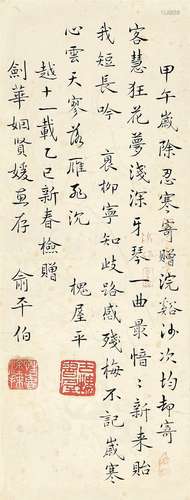 甲午歲除忍寒寄贈浣谿沙次均却寄
客慧狂花夢淺深牙琴一曲最愔〻新来貽
我短長吟 衰柳寧知歧路感殘梅不記歲寒
心雲天寥落雁飛沉 槐屋平
越十一載乙巳新春檢贈
劍華姻賢媛惠存 俞平伯